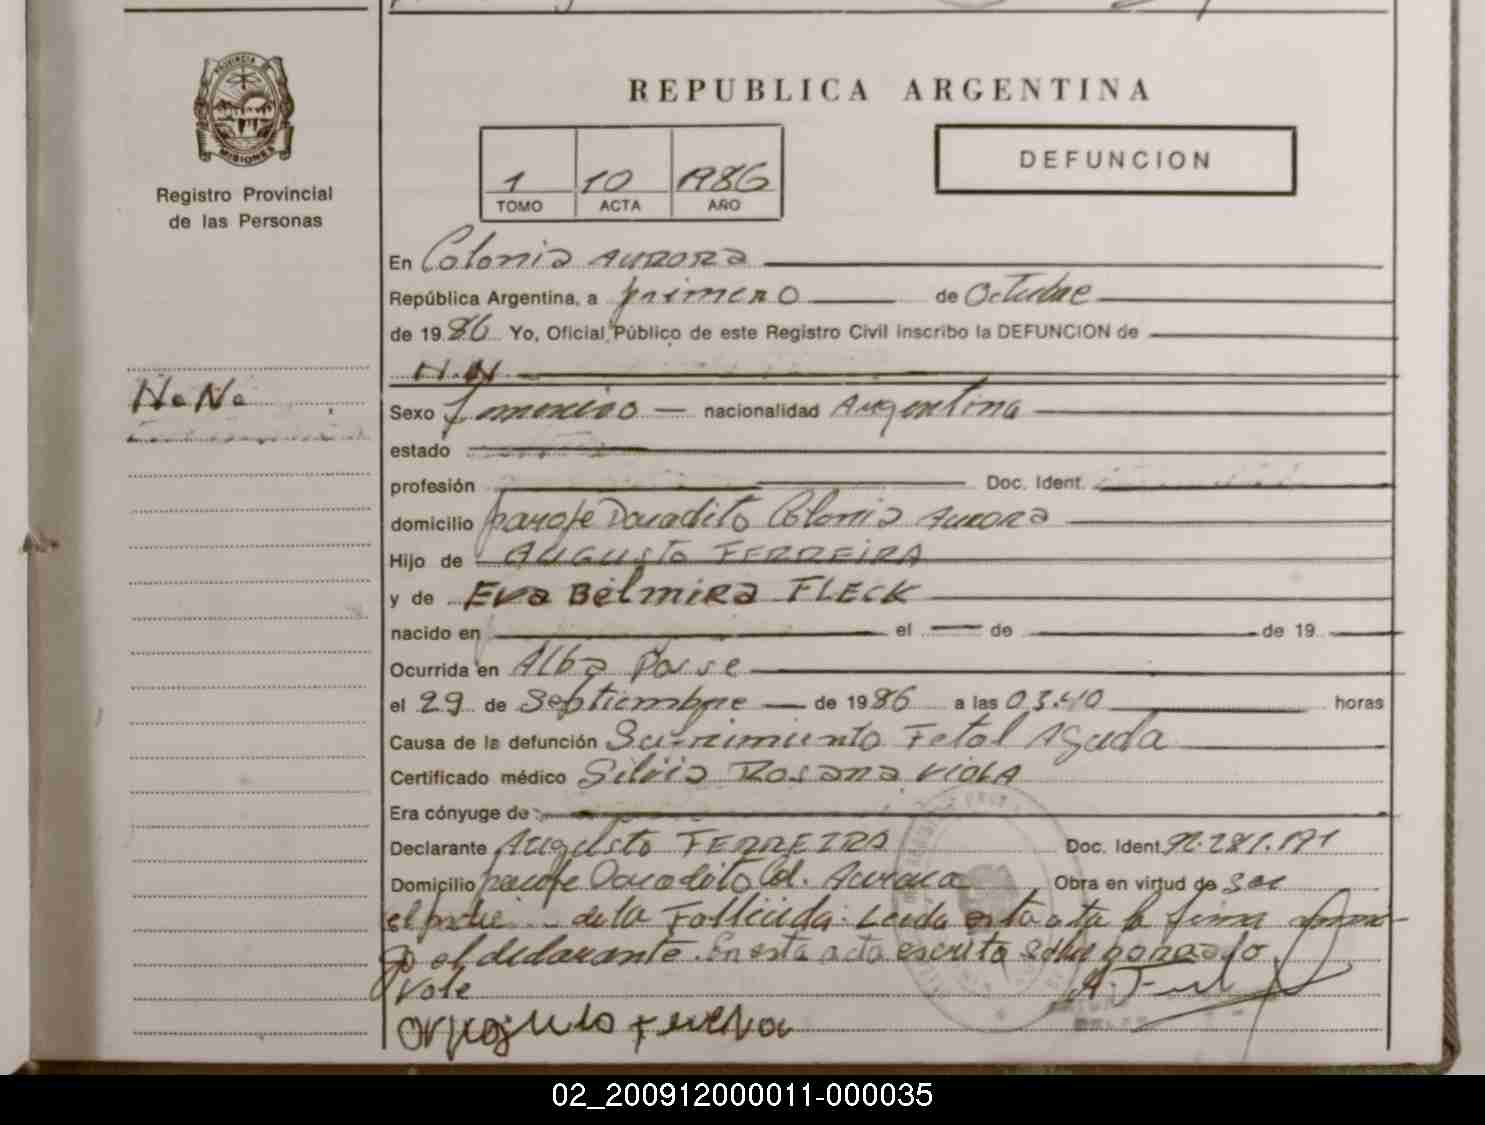 PROVINCIA DE
MISIONES
Registro Provincial
de las Personas
N.N.
REPUBLICA ARGENTINA
1 10 1986
TOMO ACTA AÑO
DEFUNCION
En Colonia Aurora
República Argentina, a primero de Octubre
de 1986 Yo, Oficial Público de este Registro Civil inscribo la DEFUNCION de
N.N
Sexo femenino nacionalidad Argentina
estado
profesión Doc. Ident.
domicilio paraje Doradito Colonia Aurora
Hijo de AUGUSTO FERREIRA
y de Eva Belmira FLECK
nacido en el de de 19
Ocurrida en Alba Posse
el 29 de Septiembre de 1986 a las 03.40 horas
Causa de la defunción Sufrimiento Fetal Aguda
Certificado médico Silvia Rosana VIOLA
Era cónyuge de
Declarante Augusto FERREIRA Doc. Ident. 92.281.171
Domicilio paraje Doradito Col. Aurora, Obra en virtud de ser
el padre de la Fallecida: Leida esta acta la firma
el declarante. En esta acta escrito
Vale